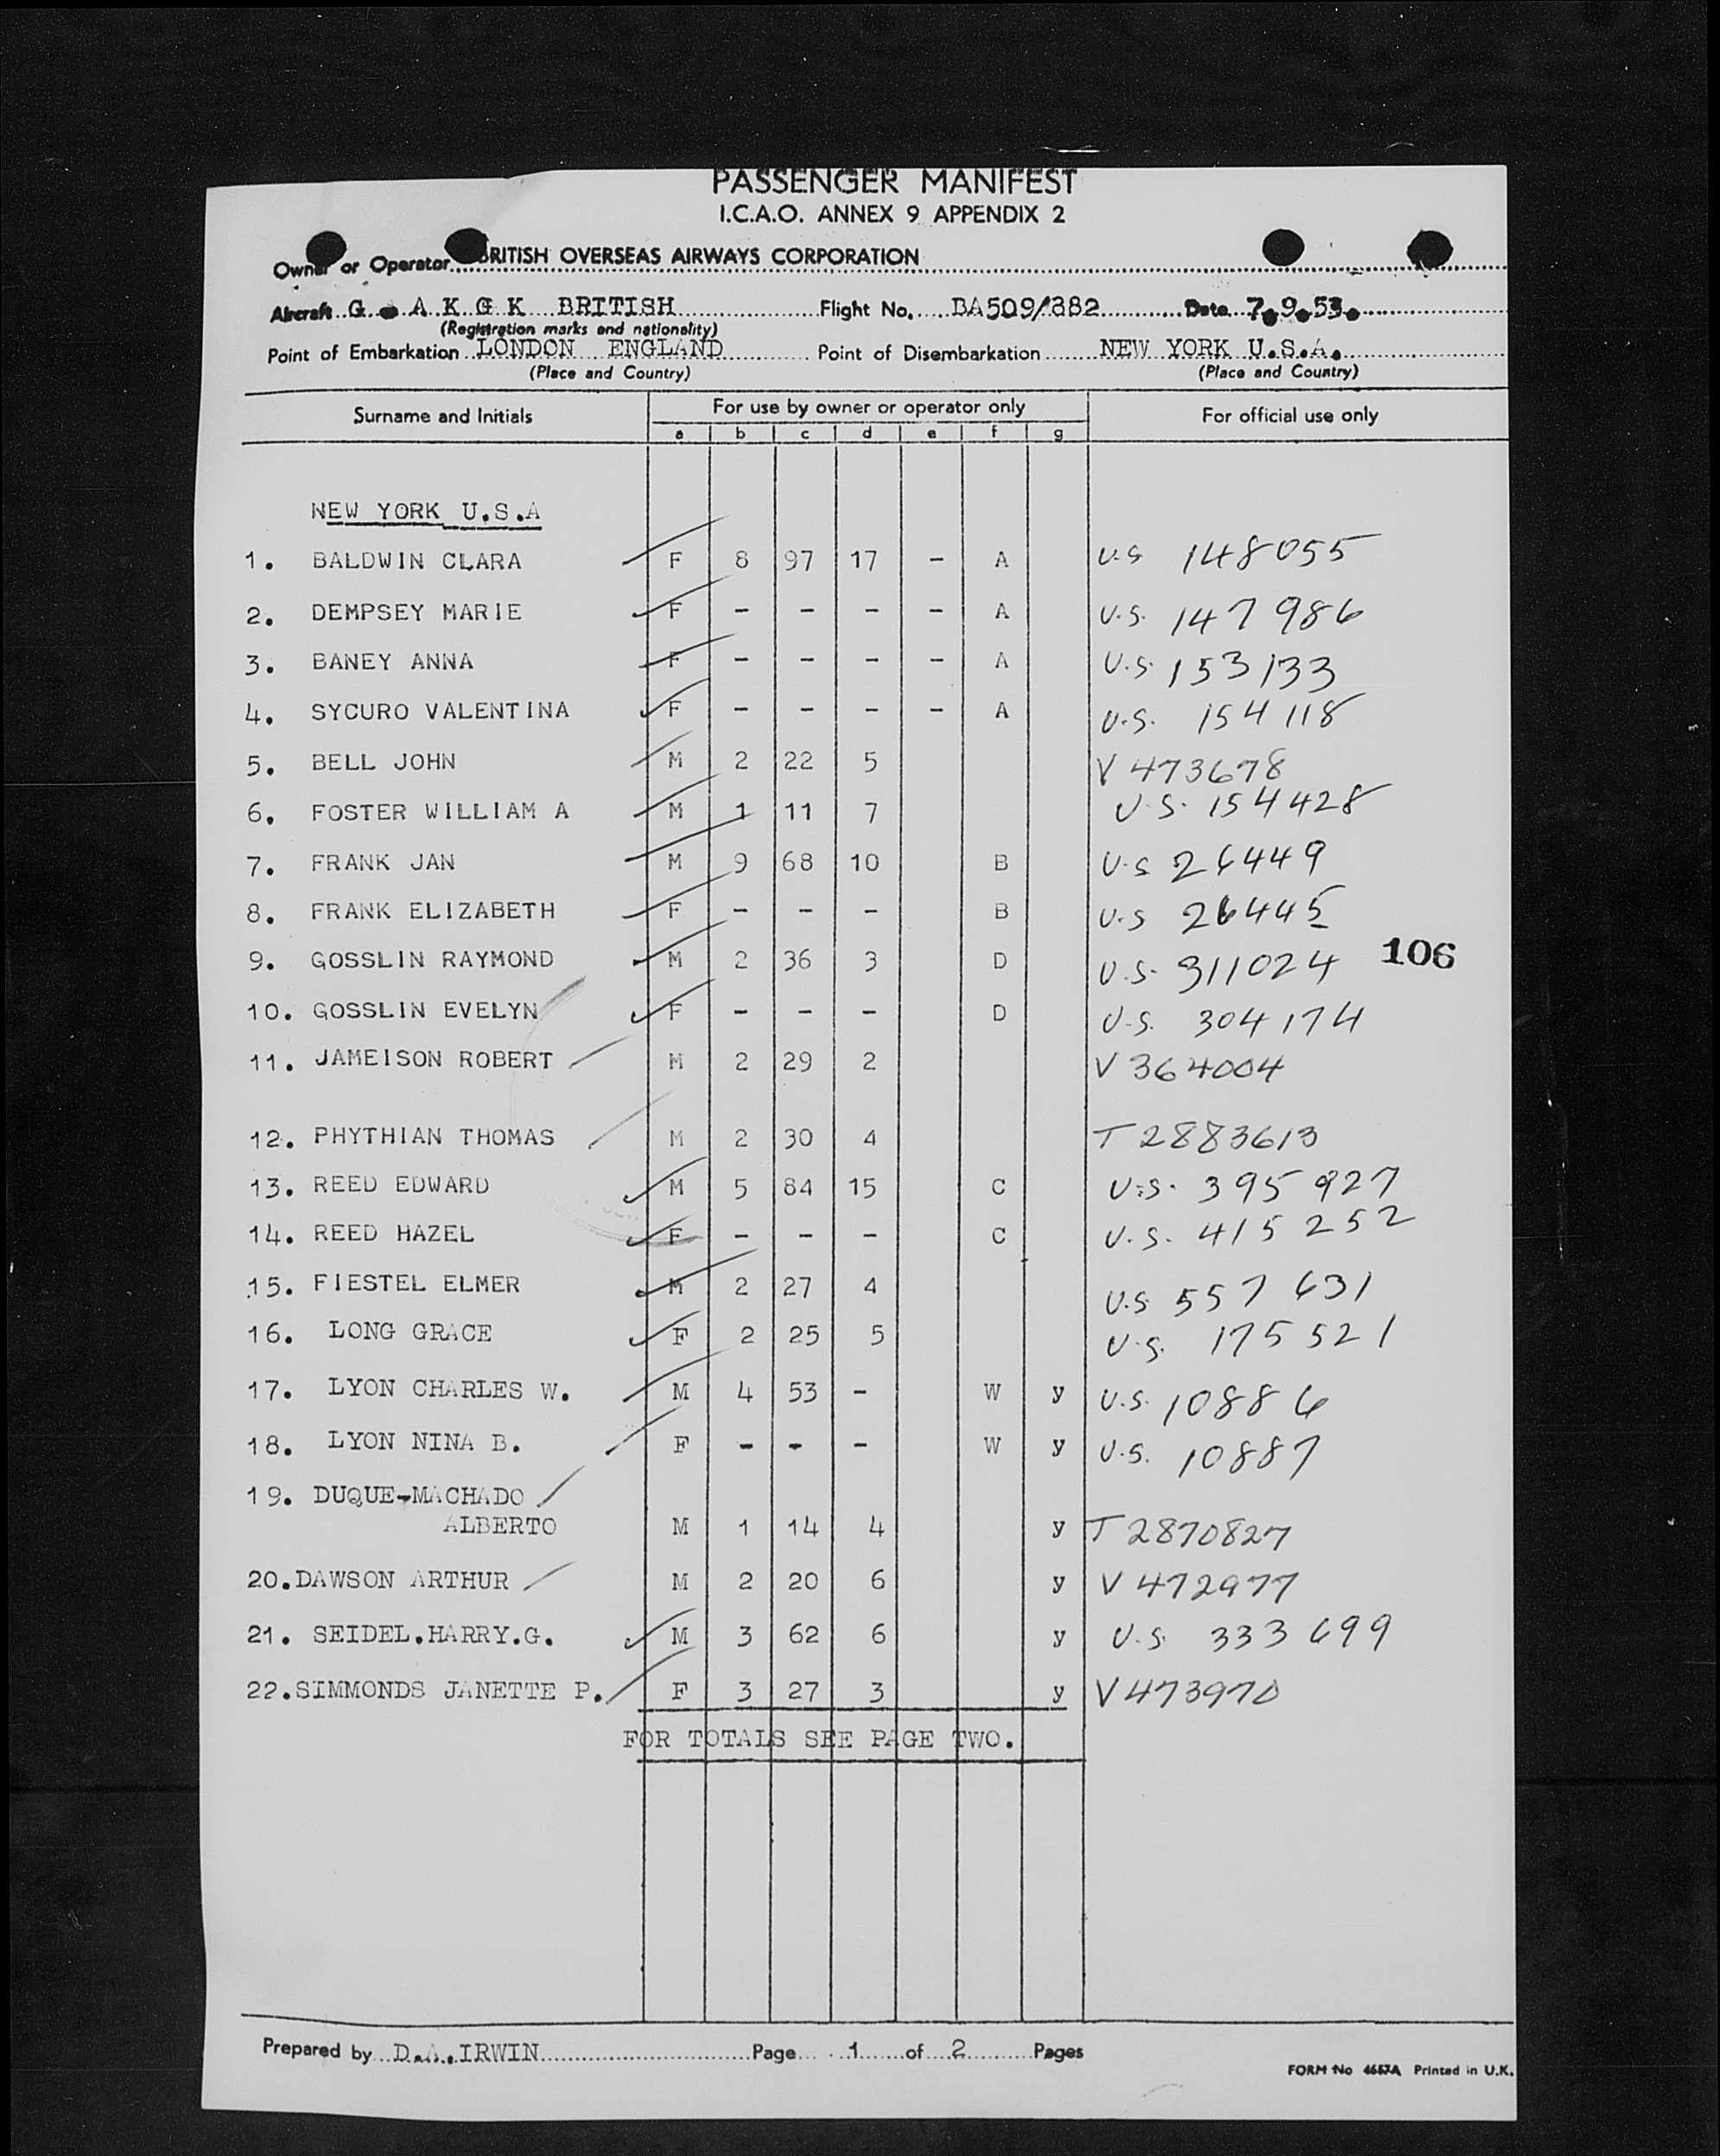 PASSENGER MANIFEST
I.C.A.O. ANNEX 9 APPENDIX 2
Owner or Operator BRITISH OVERSEAS AIRWAYS CORPORATION
Aircraft G - A K G K BRITISH Flight No. BA509/382 Date 7.9.53.
(Registration marks and nationality)
Point of Embarkation LONDON ENGLAND Point of Disembarkation NEW YORK U.S.A.
(Place and Country) (Place and Country)
Surname and Initials For use by owner or operator only For official use only
a b c d e f g
NEW YORK U.S.A
1. BALDWIN CLARA F 8 97 17 - A U.S 148055
2. DEMPSEY MARIE F - - - - A U.S. 147986
3. BANEY ANNA F - - - - A U.S. 153133
4. SYCURO VALENTINA F - - - - A U.S. 154118
5. BELL JOHN M 2 22 5 V 473678
6. FOSTER WILLIAM A M 1 11 7 U.S. 154428
7. FRANK JAN M 9 68 10 B U.S 26449
8. FRANK ELIZABETH F - - - B U.S 26445
9. GOSSLIN RAYMOND M 2 36 3 D U.S. 311024 106
10. GOSSLIN EVELYN F - - - D U.S. 304174
11. JAMEISON ROBERT M 2 29 2 V 364004
12. PHYTHIAN THOMAS M 2 30 4 T 2883613
13. REED EDWARD M 5 84 15 C U.S. 395927
14. REED HAZEL F - - - C U.S. 415252
15. FIESTEL ELMER M 2 27 4 U.S 557631
16. LONG GRACE F 2 25 5 U.S. 175521
17. LYON CHARLES W. M 4 53 - W y U.S. 10886
18. LYON NINA B. F - - - W y U.S. 10887
19. DUQUE-MACHADO
ALBERTO M 1 14 4 y T 2870827
20. DAWSON ARTHUR M 2 20 6 y V 472977
21. SEIDEL.HARRY.G. M 3 62 6 y U.S. 333699
22. SIMMONDS JANETTE P. F 3 27 3 y V 473970
FOR TOTALS SEE PAGE TWO.
Prepared by D.A.IRWIN Page 1 of 2 Pages
FORM No 4657A Printed in U.K.